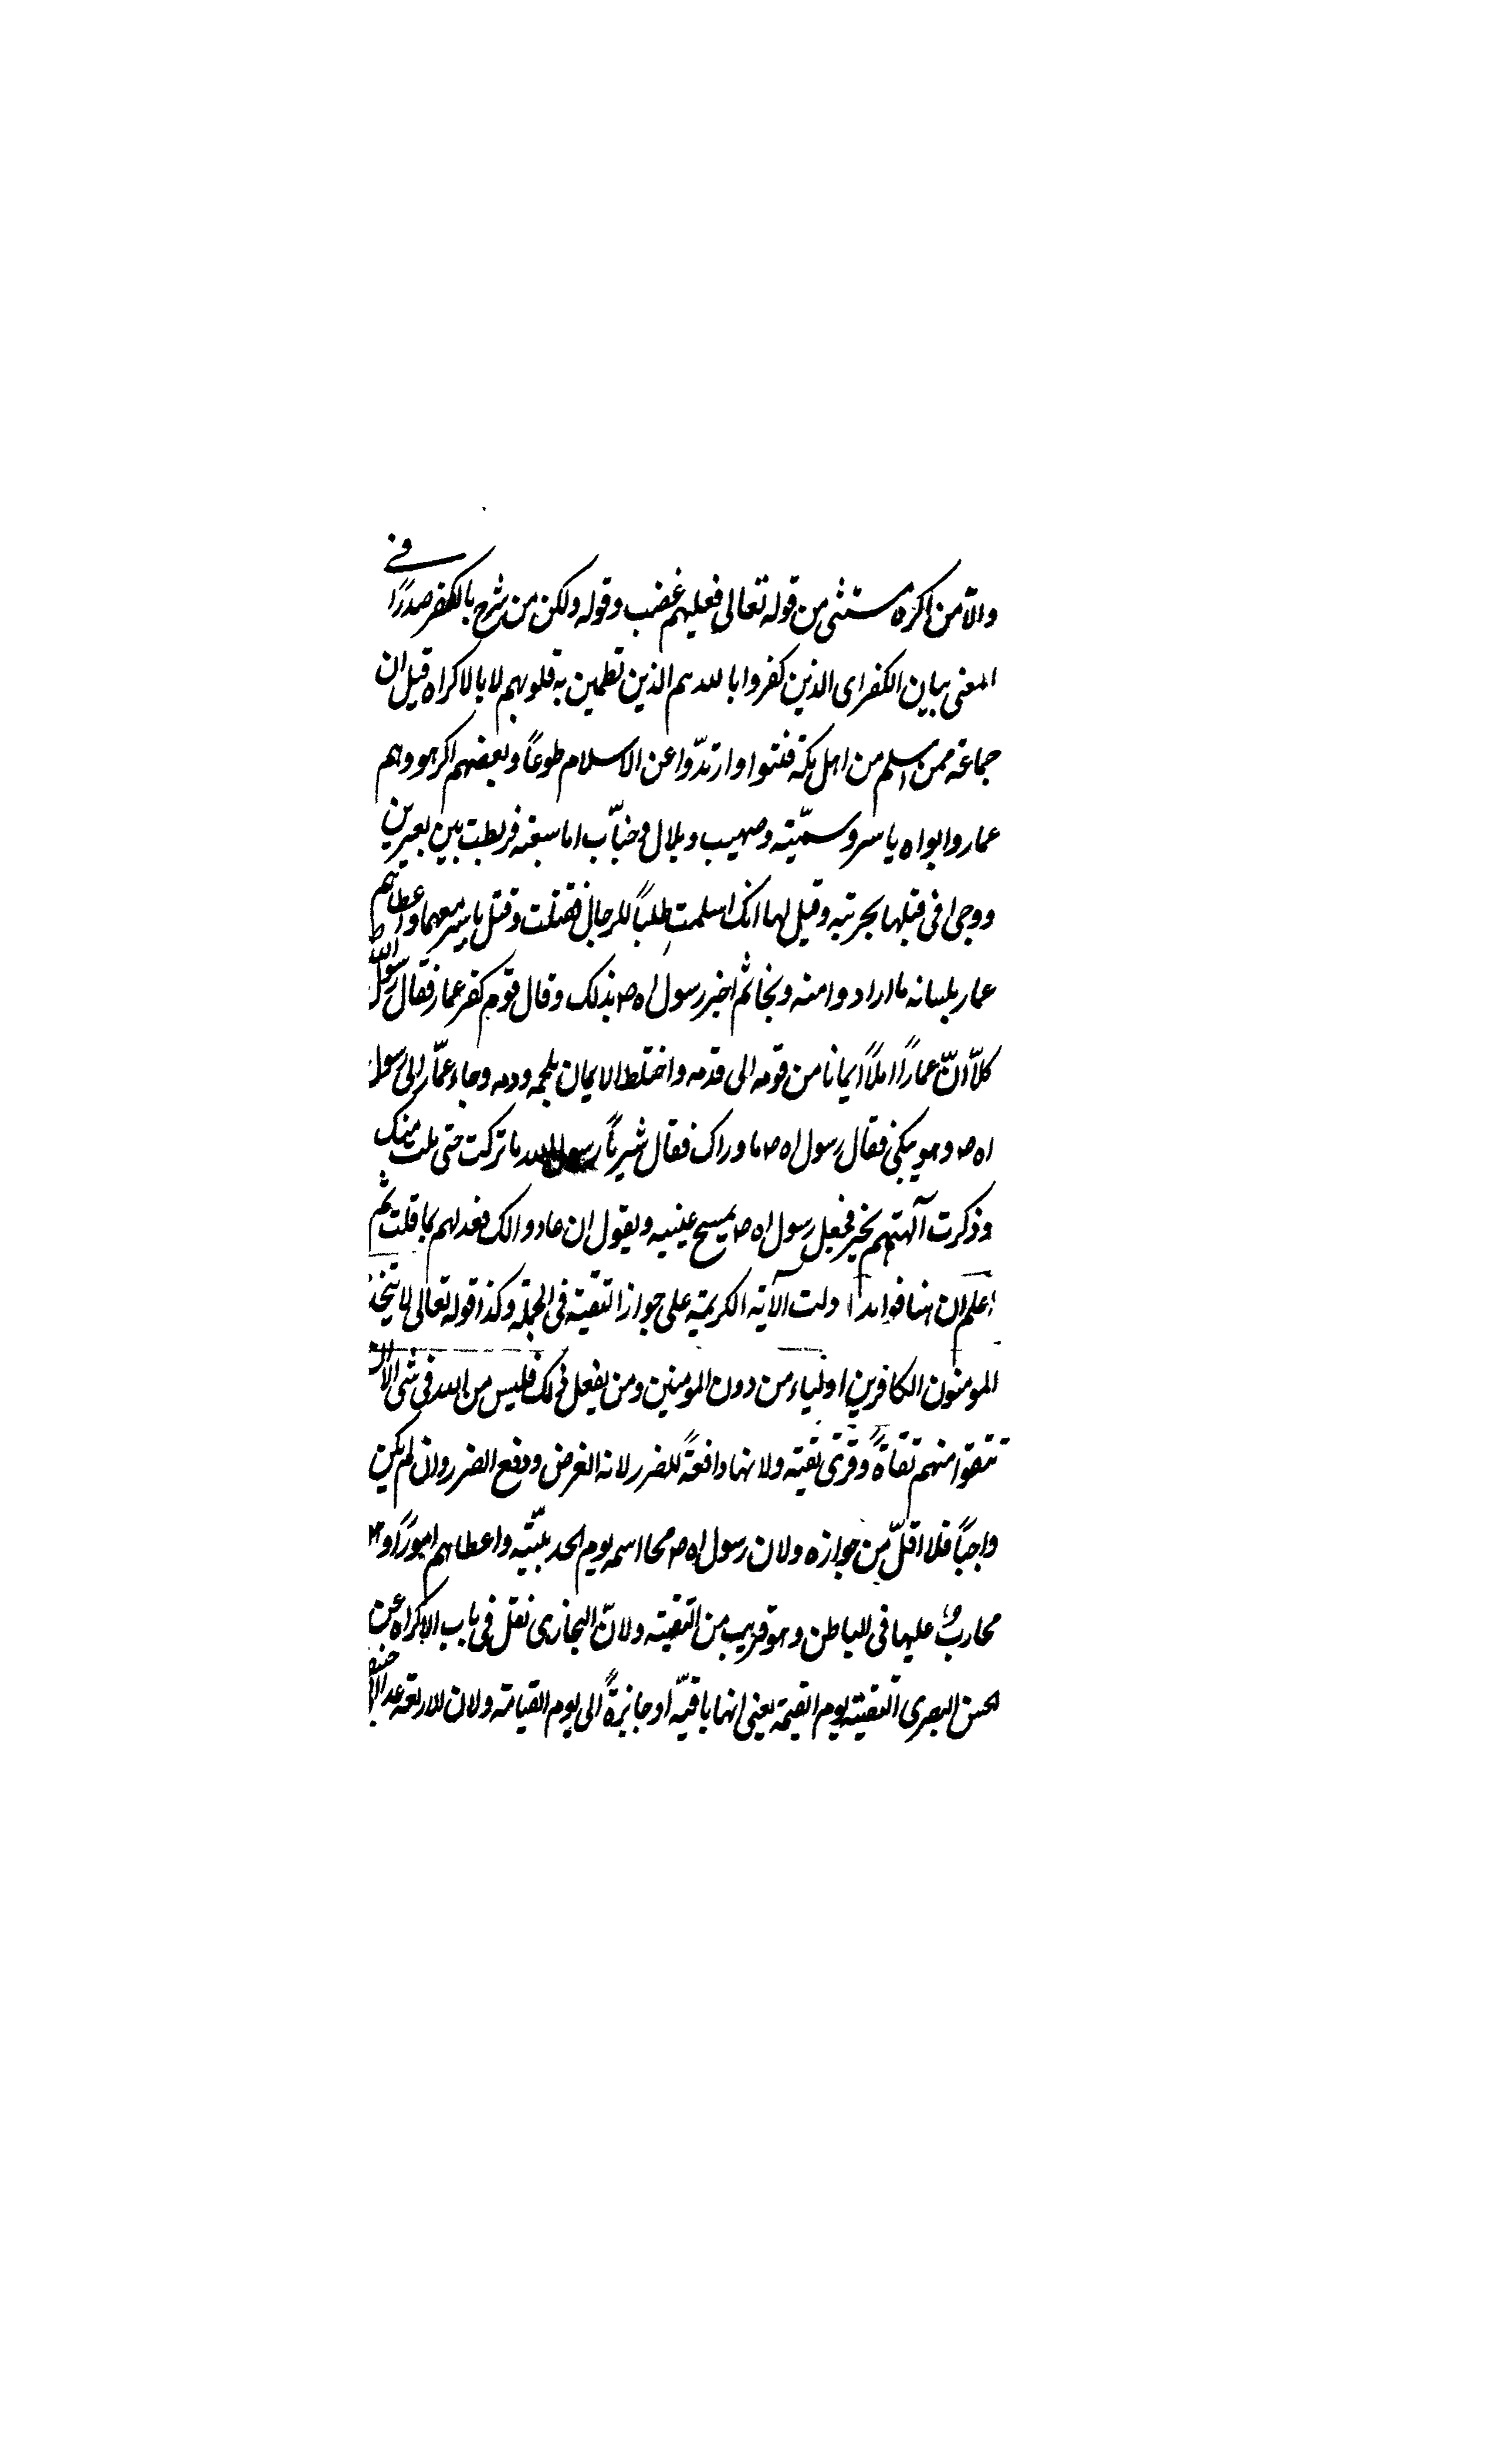 والّا من اكره مستثنى من قوله تعالى فعليهم غضب وقوله ولكن من شرح بالكفر صدرًا فى
المعنى بيان الكفر اى الذين كفروا بالله هم الذين تطمين به قلوبهم لا بالاكراه قيل ان
جماعة ممن اسلم من اهل مكة فتنوا وارتدّوا عن الاسلام طوعًا وبعضهم اكرهو وهم
عمار وابواه ياسر وسميّة وصهيب وبلال وخبّاب اما سميّة فربطت بين بعيرين
ووجى فى قبلها بحربة وقيل لها انك اسلمت طلبًا للرجال فقتلت وقتل ياسر معهما واعطاهم
عمار بلسانه ما ارادوا منه ونجا ثم اخبر رسول اه ص بذلك وقال قوم كفر عمار فقال رسول الله ص
كلّا انّ عمارًا املًا ايمانا من قرنه الى قدمه واختلط الايمان بلحمه ودمه وجاء عمّار الى رسول
اه ص وهو يبكى فقال رسول اه ص ما وراك فقال شر يا رسول الله ما تركت حتى نلت منك
وذكرت آلهتهم بخير فجعل رسول اه ص يمسح عينيه ويقول ان عادوا لك فعد لهم بما قلت ثم
اعلم ان هنا فوايد ا دلت الآية الكريمة على جواز التقية فى الجملة وكذا قوله تعالى لا يتخذ
المومنون الكافرين اولياء من دون المومنين ومن يفعل ذلك فليس من الله فى شى الا ان
تتقوا منهم تقاة وقرى تقية ولانها دافعة للضرر لانه الغرض ودفع الضرر وان لم يكن
واجبًا فلا اقلّ من جوازه ولان رسول اه ص محا اسمه يوم الحديبيّة واعطاهم امورًا وه
محارب عليها فى الباطن وهو قريب من التقية ولانّ البخارى نقل فى باب الاكراه عن
الحسن البصرى التقية يوم القيمة يعنى انها باقيّة او جائزة الى يوم القيامة ولان الاربعة عدا ابا حنيفه